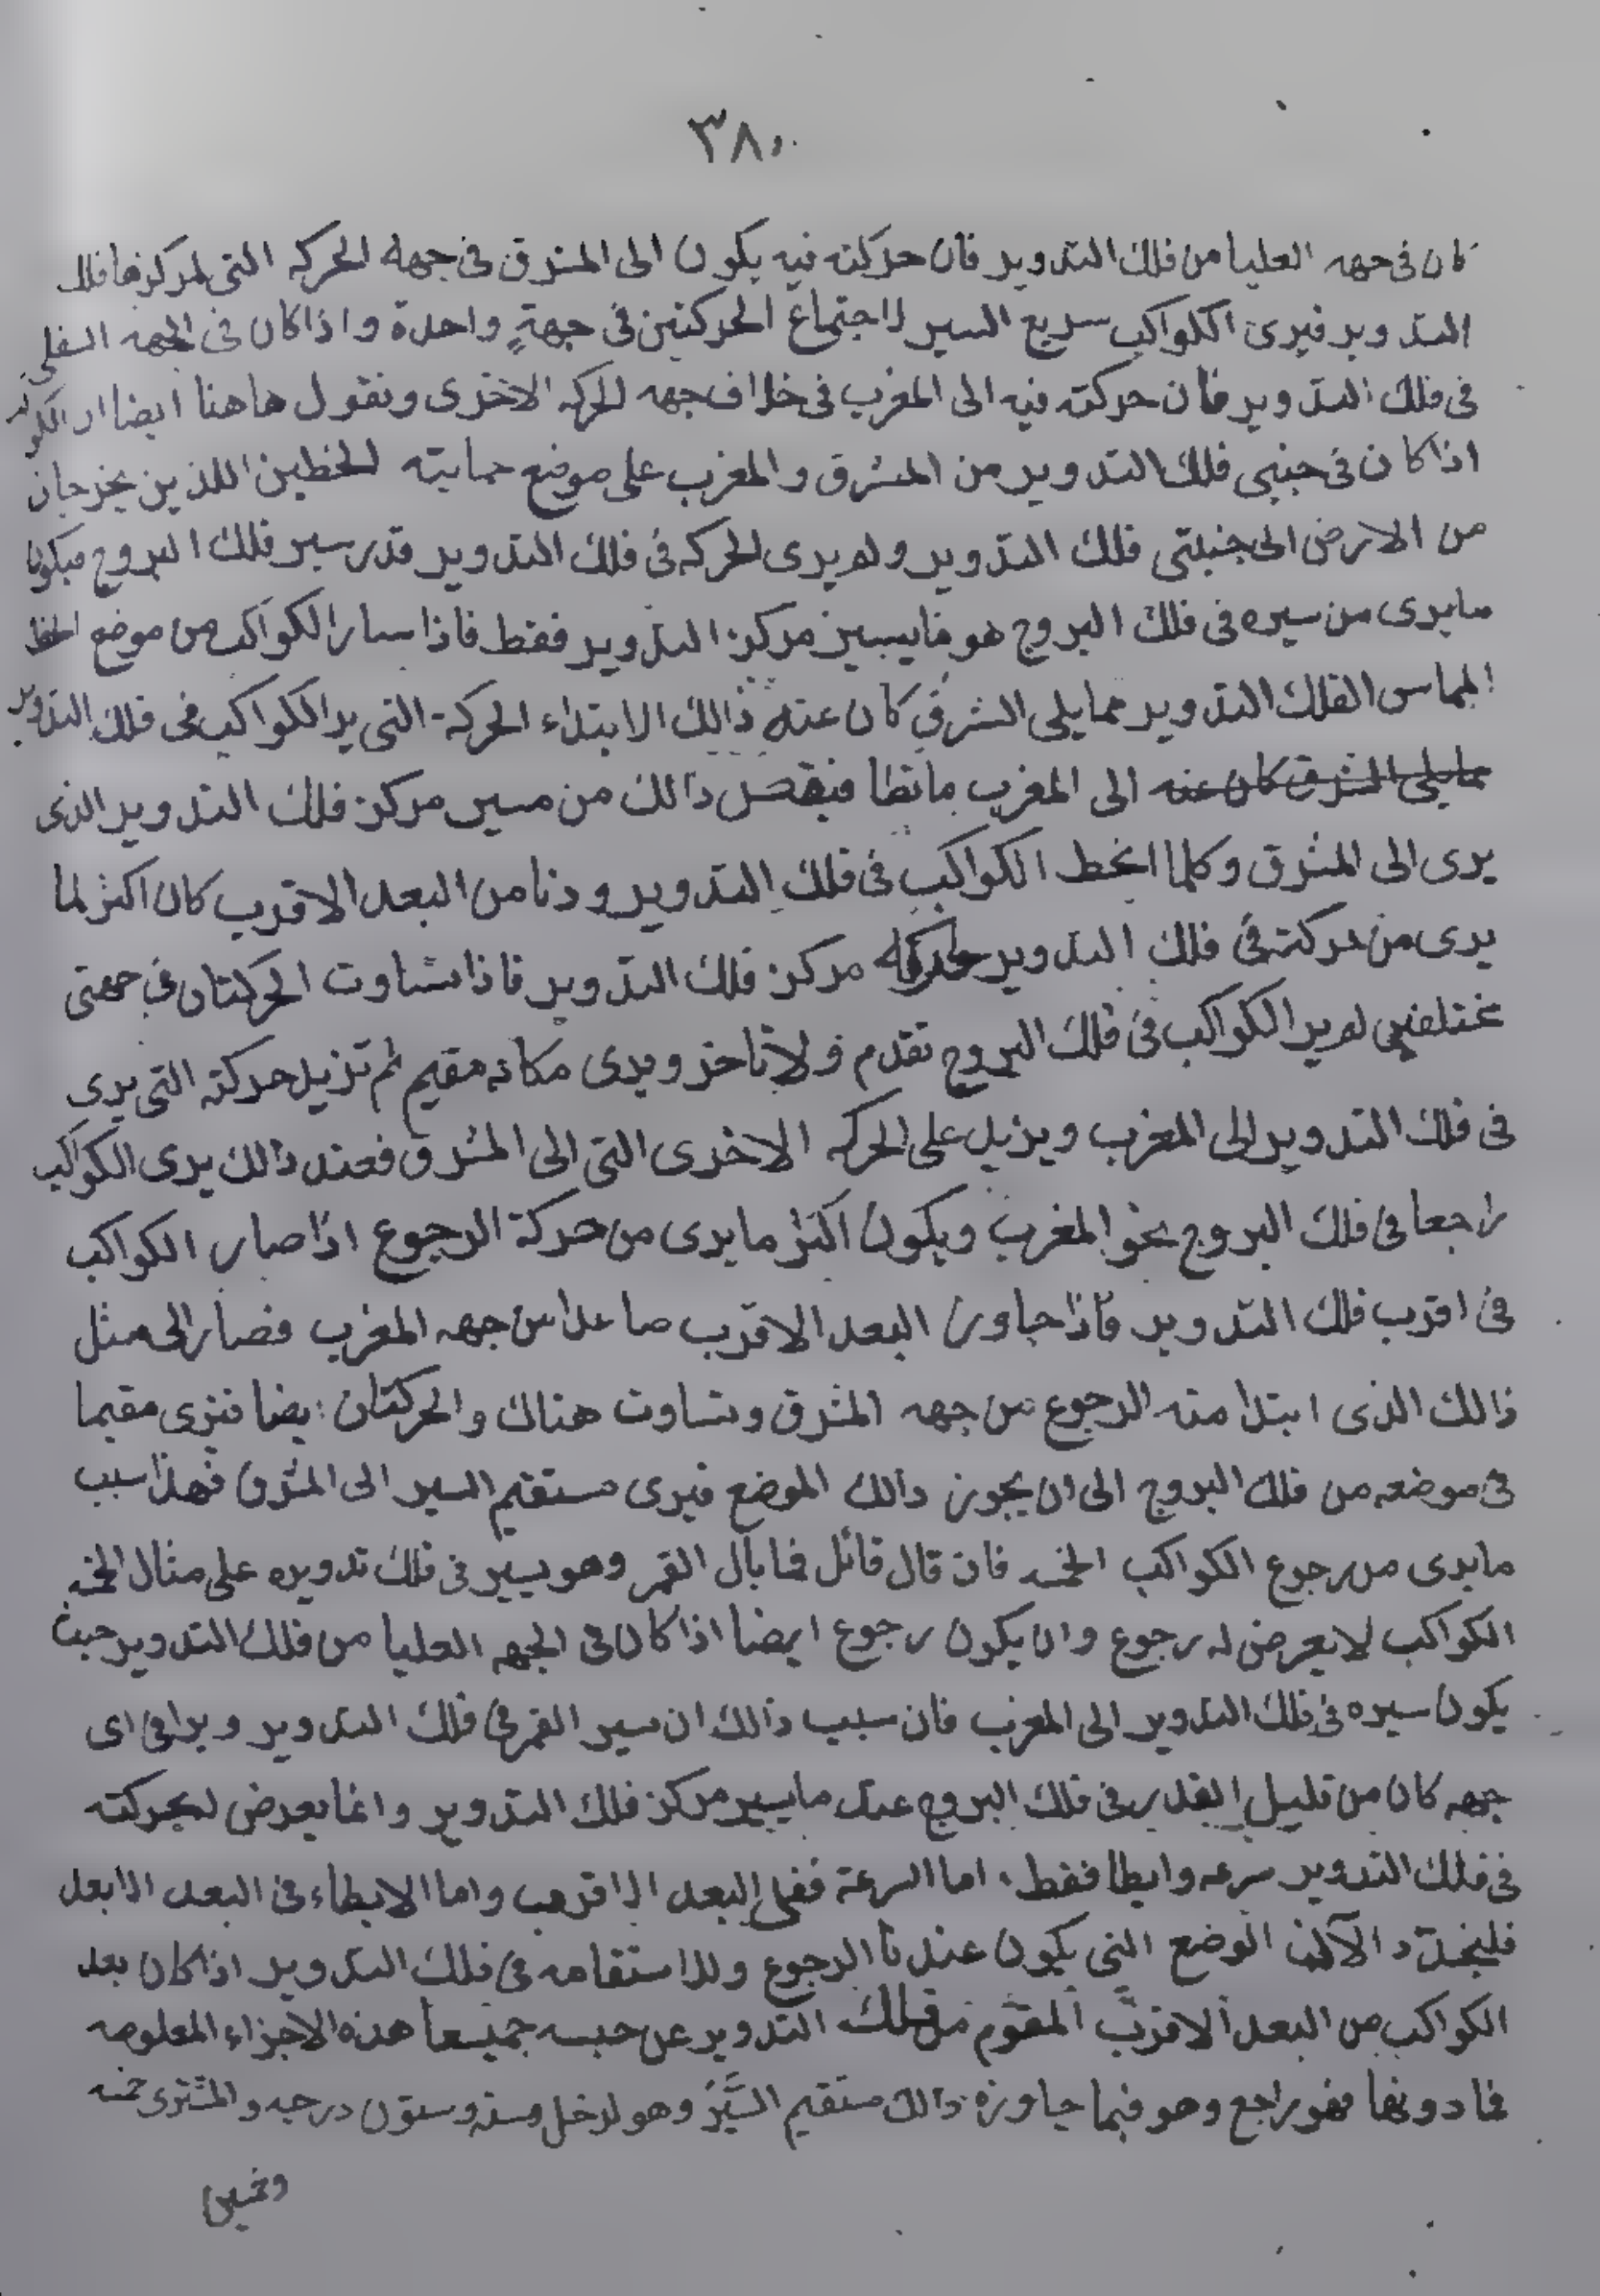 ٣٨٠
كان فى جهه العليا من فلك التدوير فان حركته فيه يكون الى المشرق فى جهة الحركه التى لمركزها فلك
التدوير فيرى الكواكب سريع السير لاجتماع الحركتين فى جهةٍ واحدة واذا كان فى الجهه السفلى
فى فلك التدوير فأن حركته فيه الى المغرب فى خلاف جهه الحركه الاخرى ونقول هاهنا ايضا ان الكو
اذا كان فى جنبى فلك التدوير من المشرق والمغرب على موضع حمايته الخطين اللذين يخرجان
من الارض الى جنبتى فلك التدوير ولم يرى الحركه فى فلك التدوير قدر سير فلك البروج فيكون
مايرى من سيره فى فلك البروج هو مايسير مركز التدوير فقط فاذا سار الكواكب من موضع الخط
المماس الفلك التدوير ممايلى الشرق كان عنه ذالك الابتداء الحركة التى يرا الكواكب فى فلك التدوير
ممايلى المشرق كان عنه الى المغرب مابطا فينقص ذالك من مسير مركز فلك التدوير الذى
يرى الى المشرق وكلما انحط الكواكب فى فلك التدوير ودنا من البعد الاقرب كان اكثر لما
يرى من حركته فى فلك التدوير مركز فلك التدوير فاذا تساوت الحركتان فى جهتى
مختلفتيى لم ير الكواكب فى فلك البروج تقدم ولاتاخر ويرى مكانه مقيم ثم تزيد حركته التى يرى
فى فلك التدوير الى المغرب ويزيد على الحركه الاخرى التى الى المشرق فعند ذالك يرى الكواكب
راجعا فى فلك البروج نحو المغرب ويكون اكثر مايرى من حركة الرجوع اذا صار الكواكب
فى اقرب فلك التدوير فاذا جاوز البعد الاقرب صاعدا من جهه المغرب فصار الى مثل
ذالك الذى ابتدا منه الرجوع من جهه المشرق وتساوت هناك والحركتان ايضا فيرى مقيما
فى موضعه من فلك البروج الى ان يجوز ذالك الموضع فيرى مستقيم السير الى المشرق فهذا سبب
مايرى من رجوع الكواكب الخمسه فان قال قائل فما بال القمر وهو يسير فى فلك تدويره على مثال الخمسه
الكواكب لايعرض له رجوع وان يكون رجوع ايضا اذا كان فى الجهه العليا من فلك التدوير حيث
يكون سيره فى فلك التدوير الى المغرب فان سبب ذالك ان سير القمر فى فلك التدوير ويرا فى اى
جهه كان من قليل القدر فى فلك البروج عند مايسير مركز فلك التدوير وانما يعرض لحركته
فى فلك التدوير سرعه وابطا فقط. اما السرعة ففى البعد الاقرب واما الابطاء فى البعد الابعد
فليخدّد الآن الوضع التى يكون عندنا الرجوع وللاستقامه فى فلك التدوير اذا كان بعد
الكواكب من البعد الاقرب المقوّم من فلك التدوير عن حبسه جميعا هذه الاجزاء المعلومه
فما دونها فهو راجع وهو فيما جاوزه ذالك مستقيم السَّيْر وهو لزحل وسته وستون درجه والمشترى خمسه
وخمسين